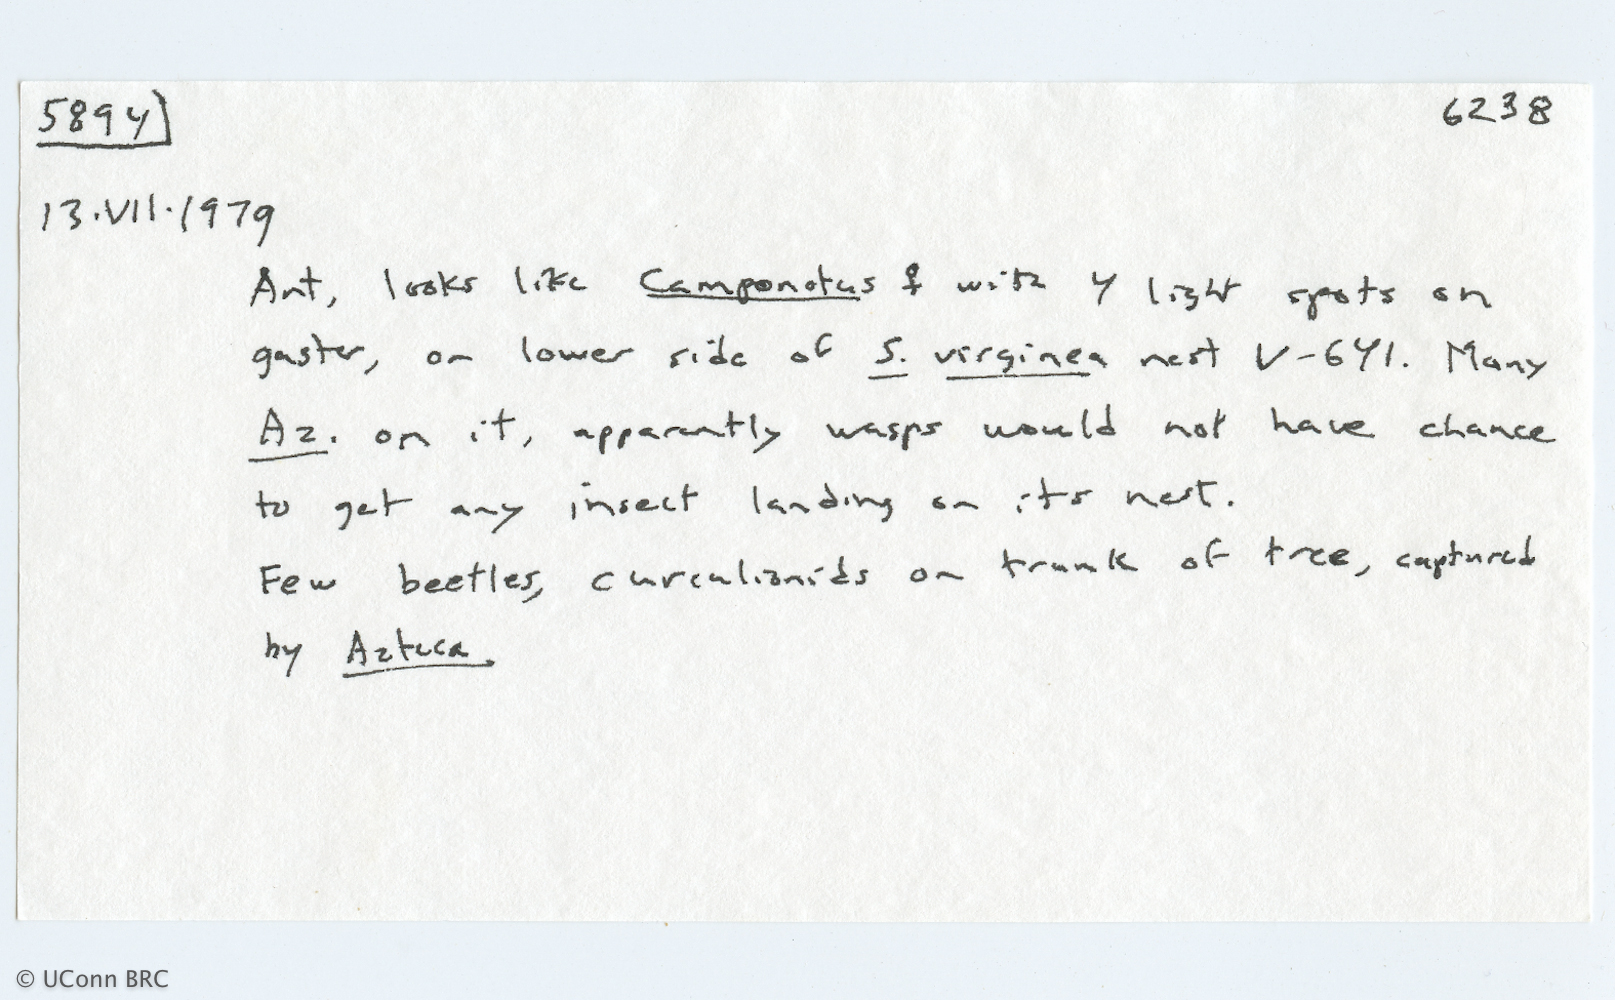 5894 6238
13.VII.1979
Ant, looks like Camponotus ☿ with 4 light spots on
gaster, on lower side of S. virginea nest V-641. Many
Az. on it, apparently wasps would not have chance
to get any insect landing on its nest.
Few beetles, curculionids on trunk of tree, captured
by Azteca.
© UConn BRC